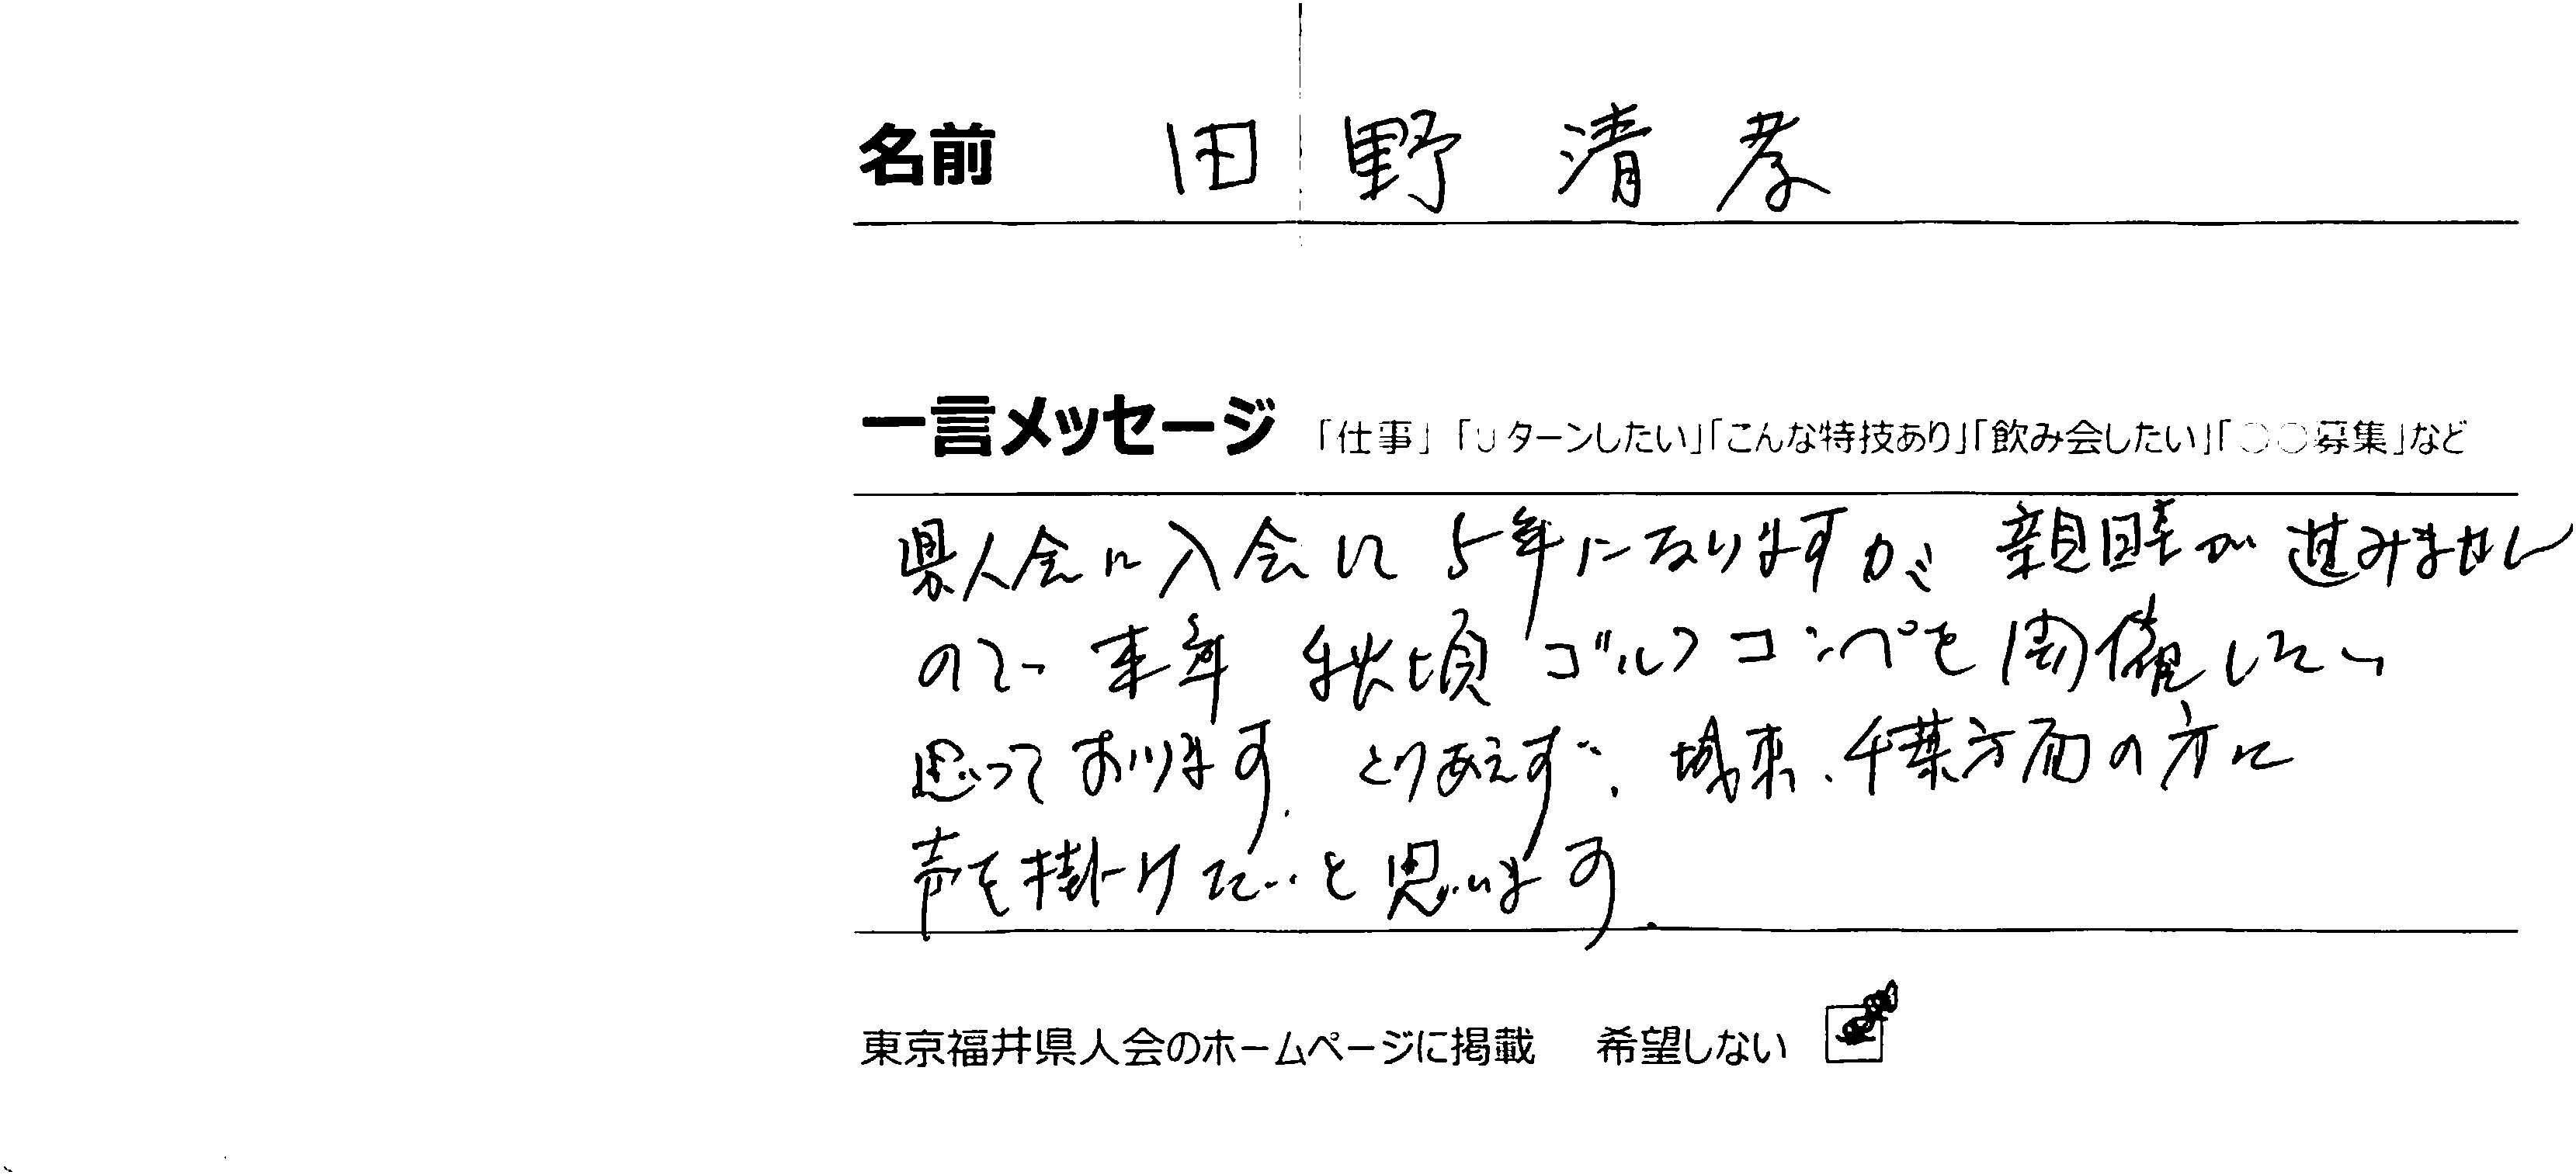 名前 田野清孝
一言メッセージ 「仕事」「Uターンしたい」「こんな特技あり」「飲み会したい」「○○募集」など
県人会に入会して5年になりますが、親睦が進みません
ので 来年 秋頃 ゴルフコンペを開催したい
思っております。とりあえず、城東、千葉方面の方に
声を掛けたいと思います。
東京福井県人会のホームページに掲載 希望しない